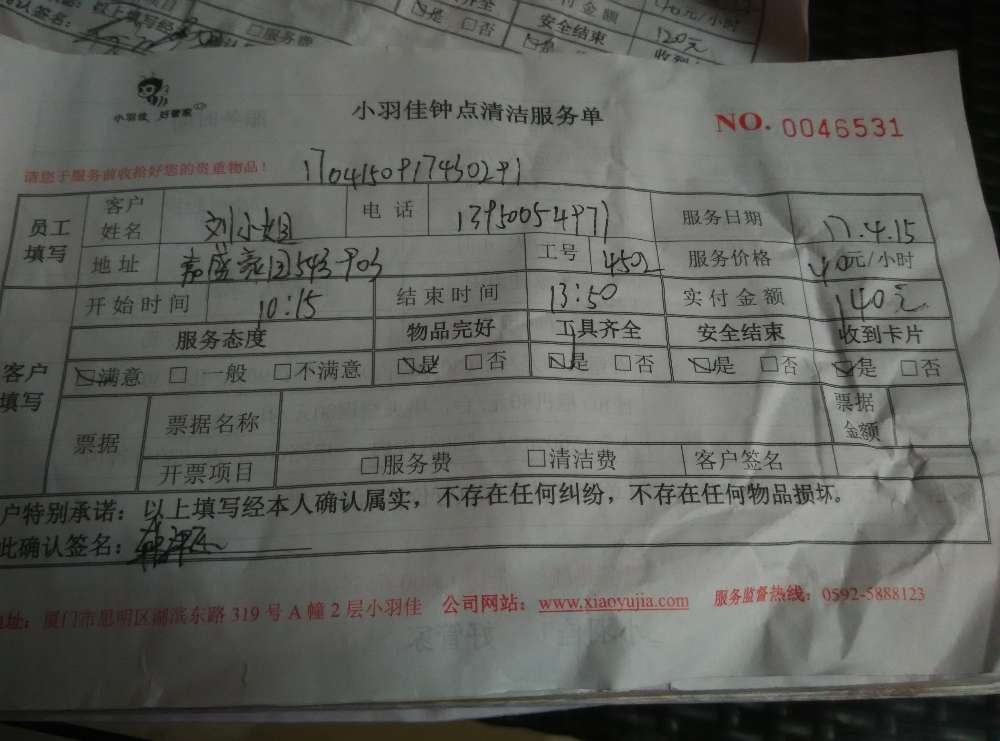 项目
□服务费
是 □否
安全结束
是
付金额
120元
元/小时
收到
小羽佳 好管家
小羽佳钟点清洁服务单
NO. 0046531
请您于服务前收拾好您的贵重物品！
1704150917450291
员工填写 客户姓名 刘小姐 电话 13950054971 服务日期 17.4.15
地址 嘉盛豪园543-903 工号 4502 服务价格 40元/小时
开始时间 10:15 结束时间 13:50 实付金额 140元
服务态度 物品完好 工具齐全 安全结束 收到卡片
客户填写 ☑满意 □ 一般 □不满意 ☑是 □否 ☑是 □否 ☑是 □否 ☑是 □否
票据 票据名称 票据金额
开票项目 □服务费 □清洁费 客户签名
户特别承诺：以上填写经本人确认属实，不存在任何纠纷，不存在任何物品损坏。
此确认签名：
地址：厦门市思明区湖滨东路 319 号 A 幢 2 层小羽佳 公司网站：www.xiaoyujia.com 服务监督热线：0592-5888123